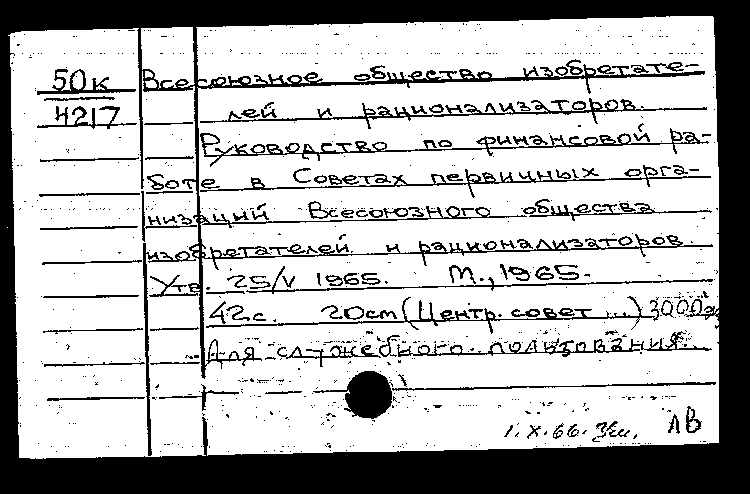 50к Всесоюзное общество изобретате-
4217 лей и рационализаторов.
Руководство по финансовой ра-
боте в Советах первичных орга-
низаций Всесоюзного общества
изобретателей и рационализаторов
Утв. 25/V 1965. М., 1965.
42с. 20см (Центр. совет ...) 3000э
Для служебного пользования.
1.X.66. ЛВ